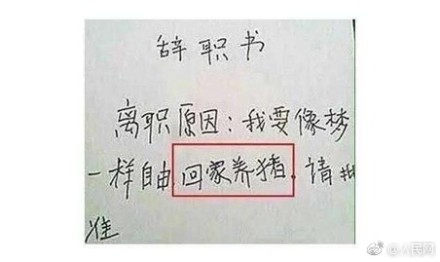 辞职书
离职原因:我要像梦
一样自由.回家养猪.请批
准
@人民网